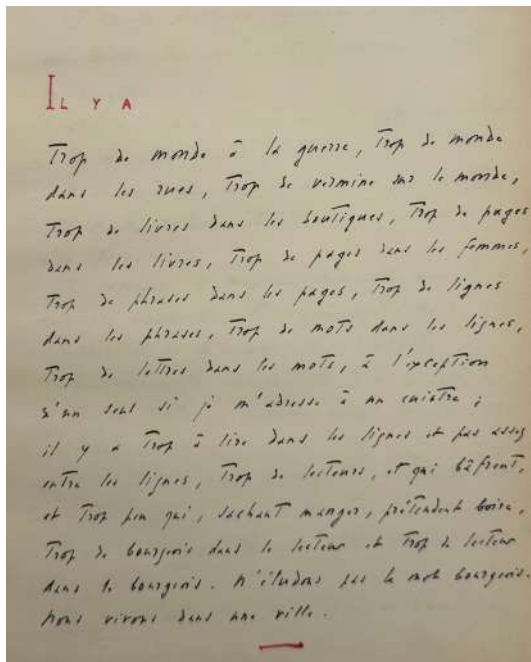 IL Y A
Trop de monde à la guerre, Trop de monde
dans les rues, Trop de vermine sur le monde,
Trop de livres dans les boutiques, Trop de pages
dans les livres, Trop de pages dans les femmes,
Trop de phrases dans les pages, Trop de lignes
dans les phrases, Trop de mots dans les lignes,
Trop de lettres dans les mots, à l'exception
d'un seul si je m'adresse à un cuistre ;
il y a Trop à lire dans les lignes et pas assez
entre les lignes, Trop de lecteurs, et qui bâfrent,
et Trop peu qui, sachant manger, prétendent boire,
Trop de bourgeois dans le lecteur et Trop de lecteur
dans le bourgeois. N'éludons pas le mot bourgeois.
Nous vivons dans une ville.